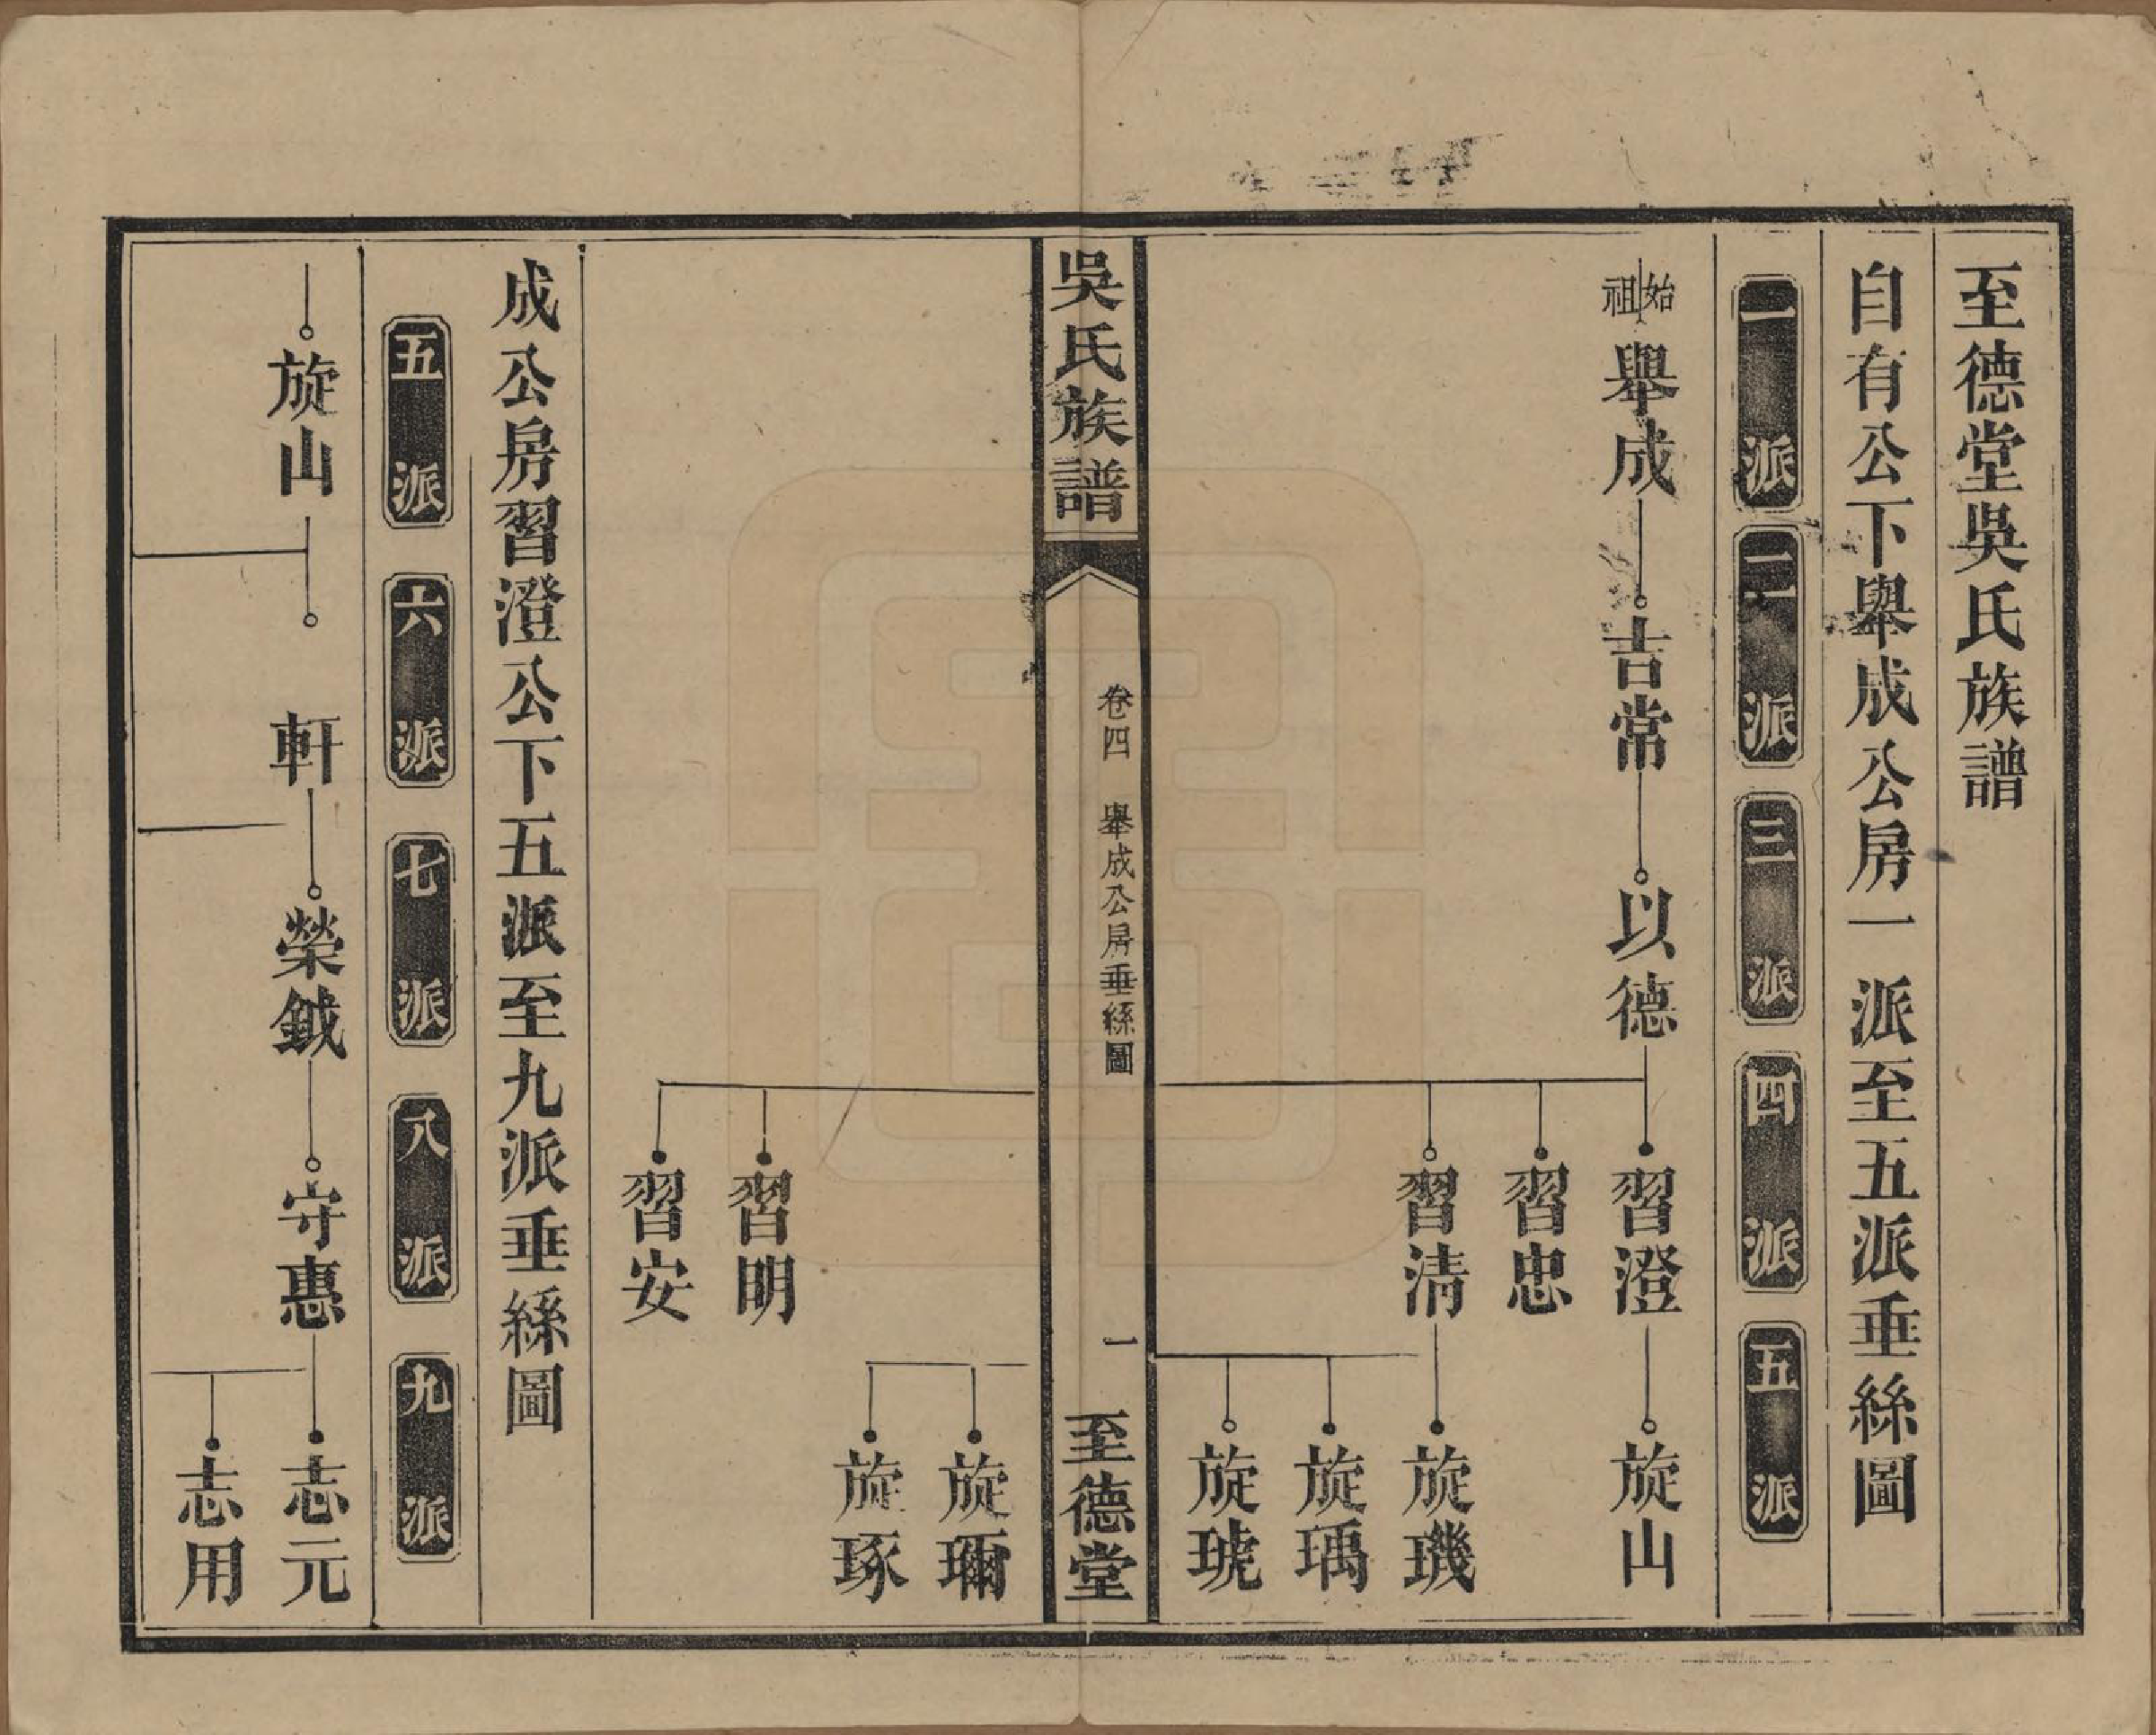 至德堂吳氏族譜
自有公下舉成公房一派至五派垂絲圖
一派 二派 三派 四派 五派
始祖 舉成 吉常 以德 習澄 旋山
習忠
習清 旋璣
旋瑀
旋琥
吳氏族譜 卷四 舉成公房垂絲圖 一 至德堂
旋瓊
旋琢
習明
習安
成公房習澄公下五派至九派垂絲圖
五派 六派 七派 八派 九派
旋山 軒 榮鉞 守惠 志元
志用